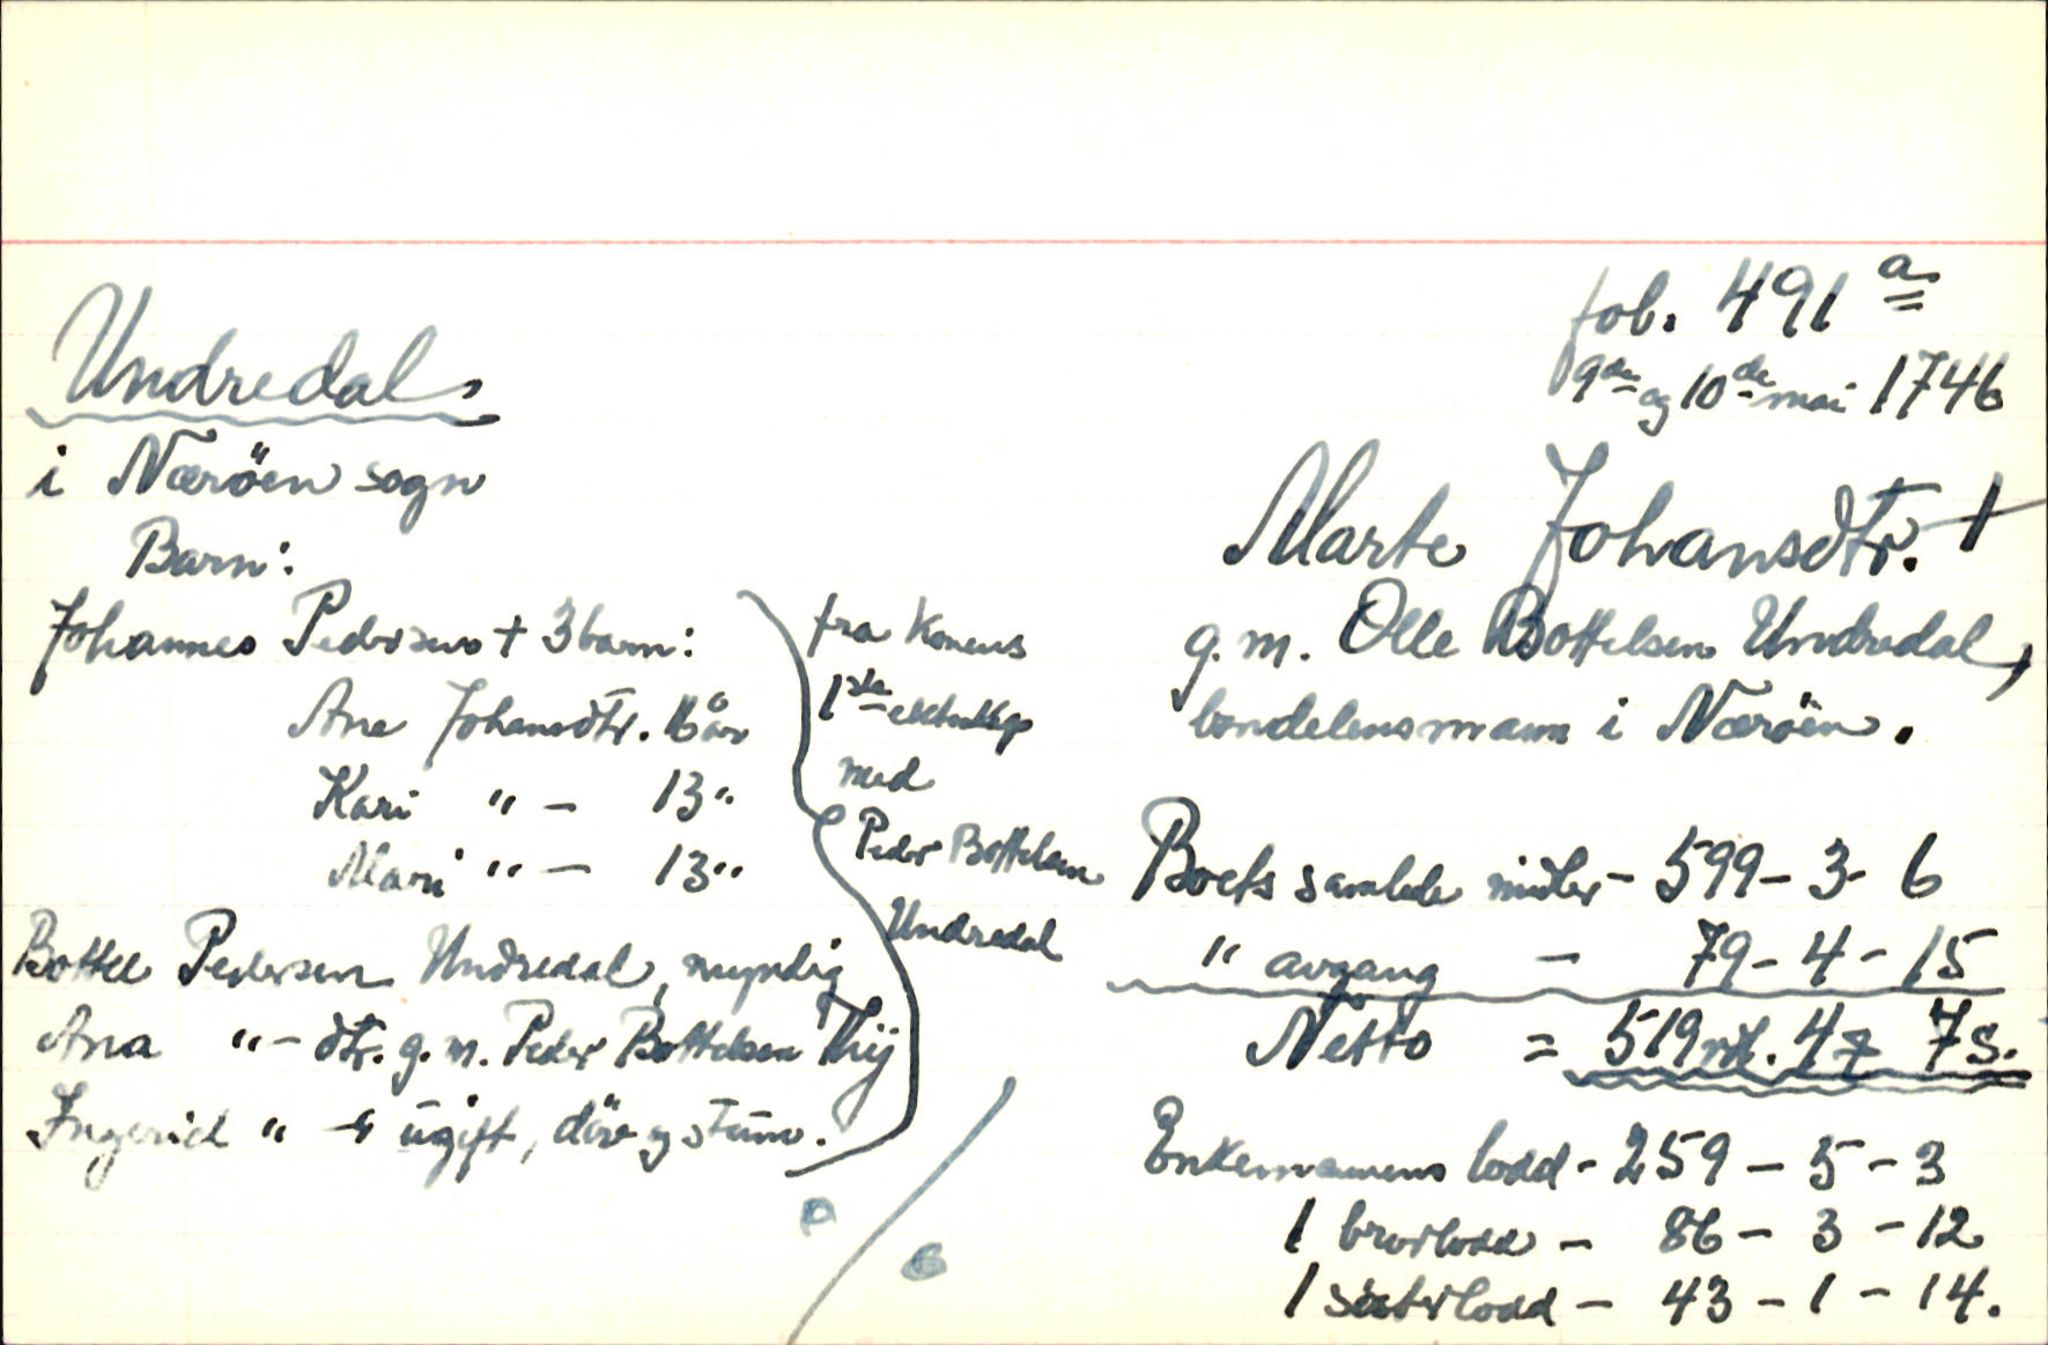 fol. 491 a
9de og 10de mai 1746
Undredal,
i Næröen sogn
Barn:
Johannes Pedersens + 3 barn:
Ane Johansdtr. 16 år
Kari " - 13 "
Mari " - 13 "
Bottel Pedersen Undredal, myndig
Ana " - dtr. g. m. Peder Bottelsen Thij
Ingerid " - " ugift, döv og stum.
fra Konens
1ste ekteskap
med
Peder Bottelsen
Undredal
Marte Johansdtr. +
g. m. Olle Bottelsen Undredal,
bondelensmann i Næröen.
Boets samlede midler - 599 - 3 - 6
" avgang - 79 - 4 - 15
Netto = 519 rd. 4 7 s.
Enkemannens lodd - 259 - 5 - 3
1 brorlodd - 86 - 3 - 12
1 sösterlodd - 43 - 1 - 14.